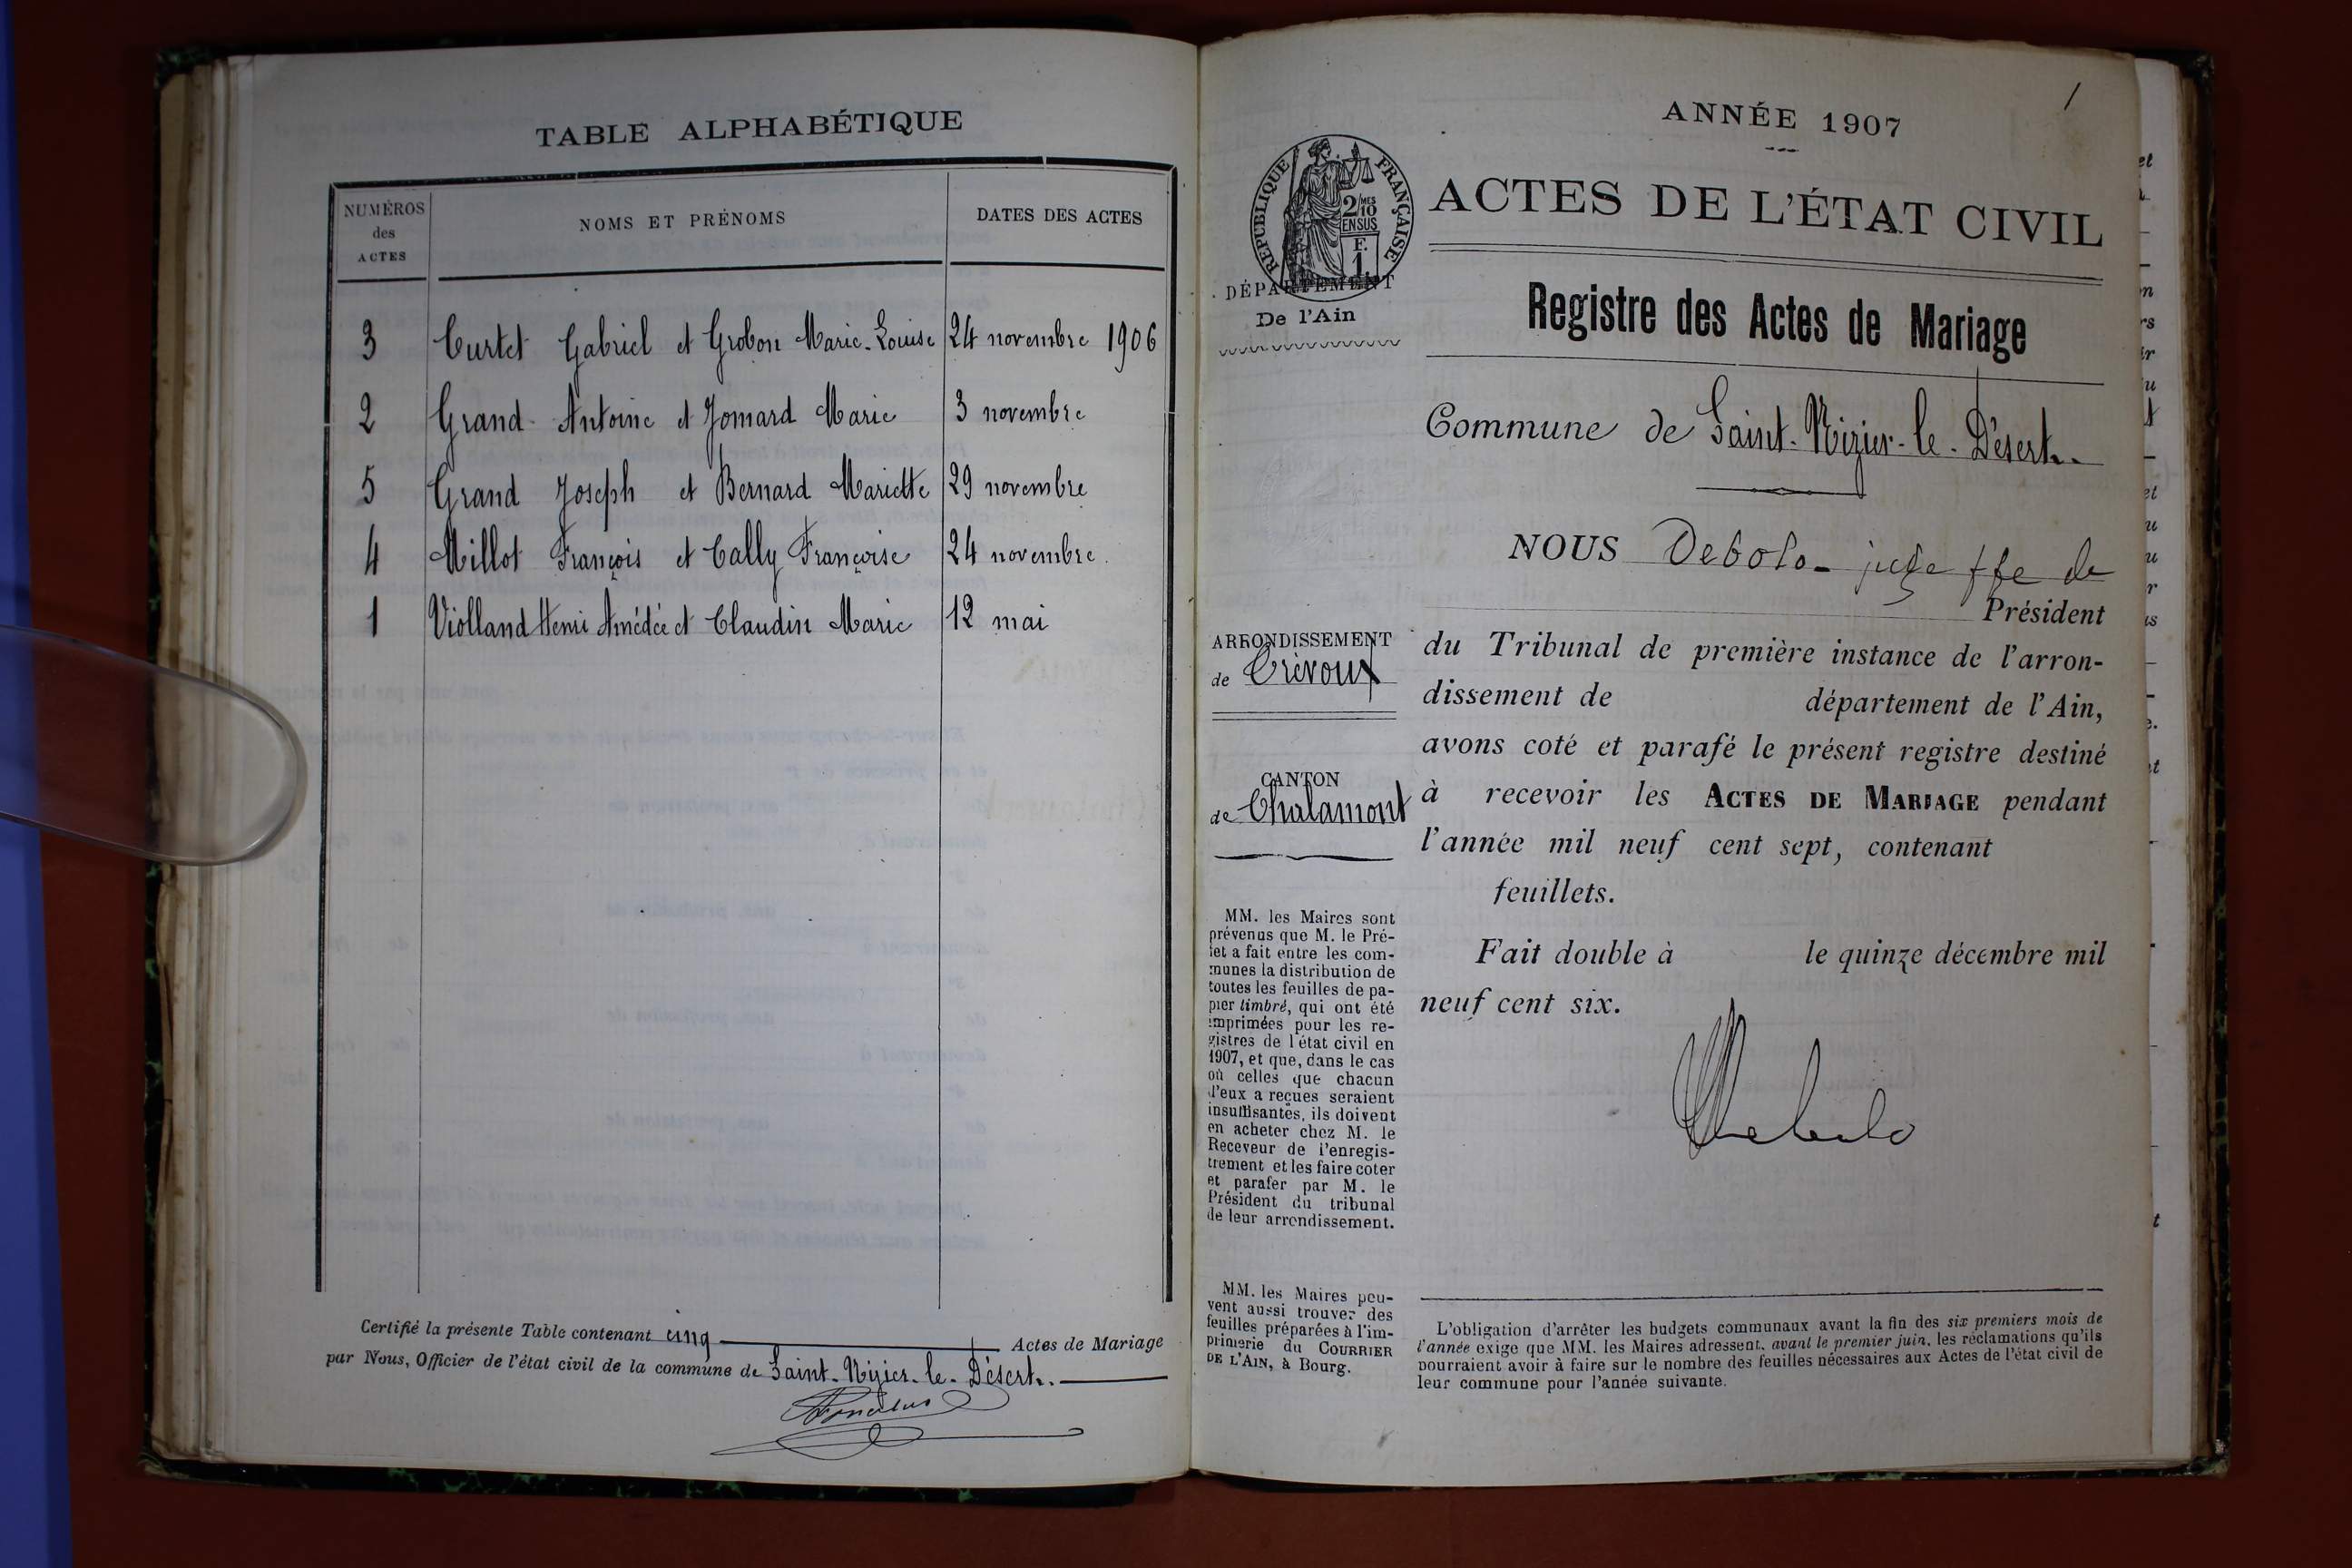 TABLE ALPHABÉTIQUE
NUMÉROS
des
ACTES
NOMS ET PRÉNOMS
DATES DES ACTES
3 Curtet Gabriel et Grobon Marie-Louise 24 novembre 1906
2 Grand Antoine et Jomard Marie 3 novembre
5 Grand Joseph et Bernard Mariette 29 novembre
4 Millot François et Cally Françoise 24 novembre
1 Violland Henri Amédée et Claudin Marie 12 mai
Certifié la présente Table contenant cinq Actes de Mariage
par Nous, Officier de l'état civil de la commune de Saint-Nizier-le-Désert.
1
ANNÉE 1907
RÉPUBLIQUE FRANÇAISE
2/10 MES
EN SUS
F.
1.
DÉPARTEMENT
De l'Ain
ACTES DE L'ÉTAT CIVIL
Registre des Actes de Mariage
Commune de Saint-Nizier-le-Désert.
NOUS Debolo juge ffe de
Président
ARRONDISSEMENT
de Trévoux
CANTON
de Chalamont
du Tribunal de première instance de l'arron-
dissement de département de l'Ain,
avons coté et parafé le présent registre destiné
à recevoir les ACTES DE MARIAGE pendant
l'année mil neuf cent sept, contenant
feuillets.
Fait double à le quinze décembre mil
neuf cent six.
Debolo
MM. les Maires sont
prévenus que M. le Pré-
fet a fait entre les com-
munes la distribution de
toutes les feuilles de pa-
pier timbré, qui ont été
imprimées pour les re-
gistres de l'état civil en
1907, et que, dans le cas
où celles que chacun
d'eux a reçues seraient
insuffisantes, ils doivent
en acheter chez M. le
Receveur de l'enregis-
trement et les faire coter
et parafer par M. le
Président du tribunal
de leur arrondissement.
MM. les Maires peu-
vent aussi trouver des
feuilles préparées à l'im-
primerie du COURRIER
DE L'AIN, à Bourg.
L'obligation d'arrêter les budgets communaux avant la fin des six premiers mois de
l'année exige que MM. les Maires adressent, avant le premier juin, les réclamations qu'ils
pourraient avoir à faire sur le nombre des feuilles nécessaires aux Actes de l'état civil de
leur commune pour l'année suivante.